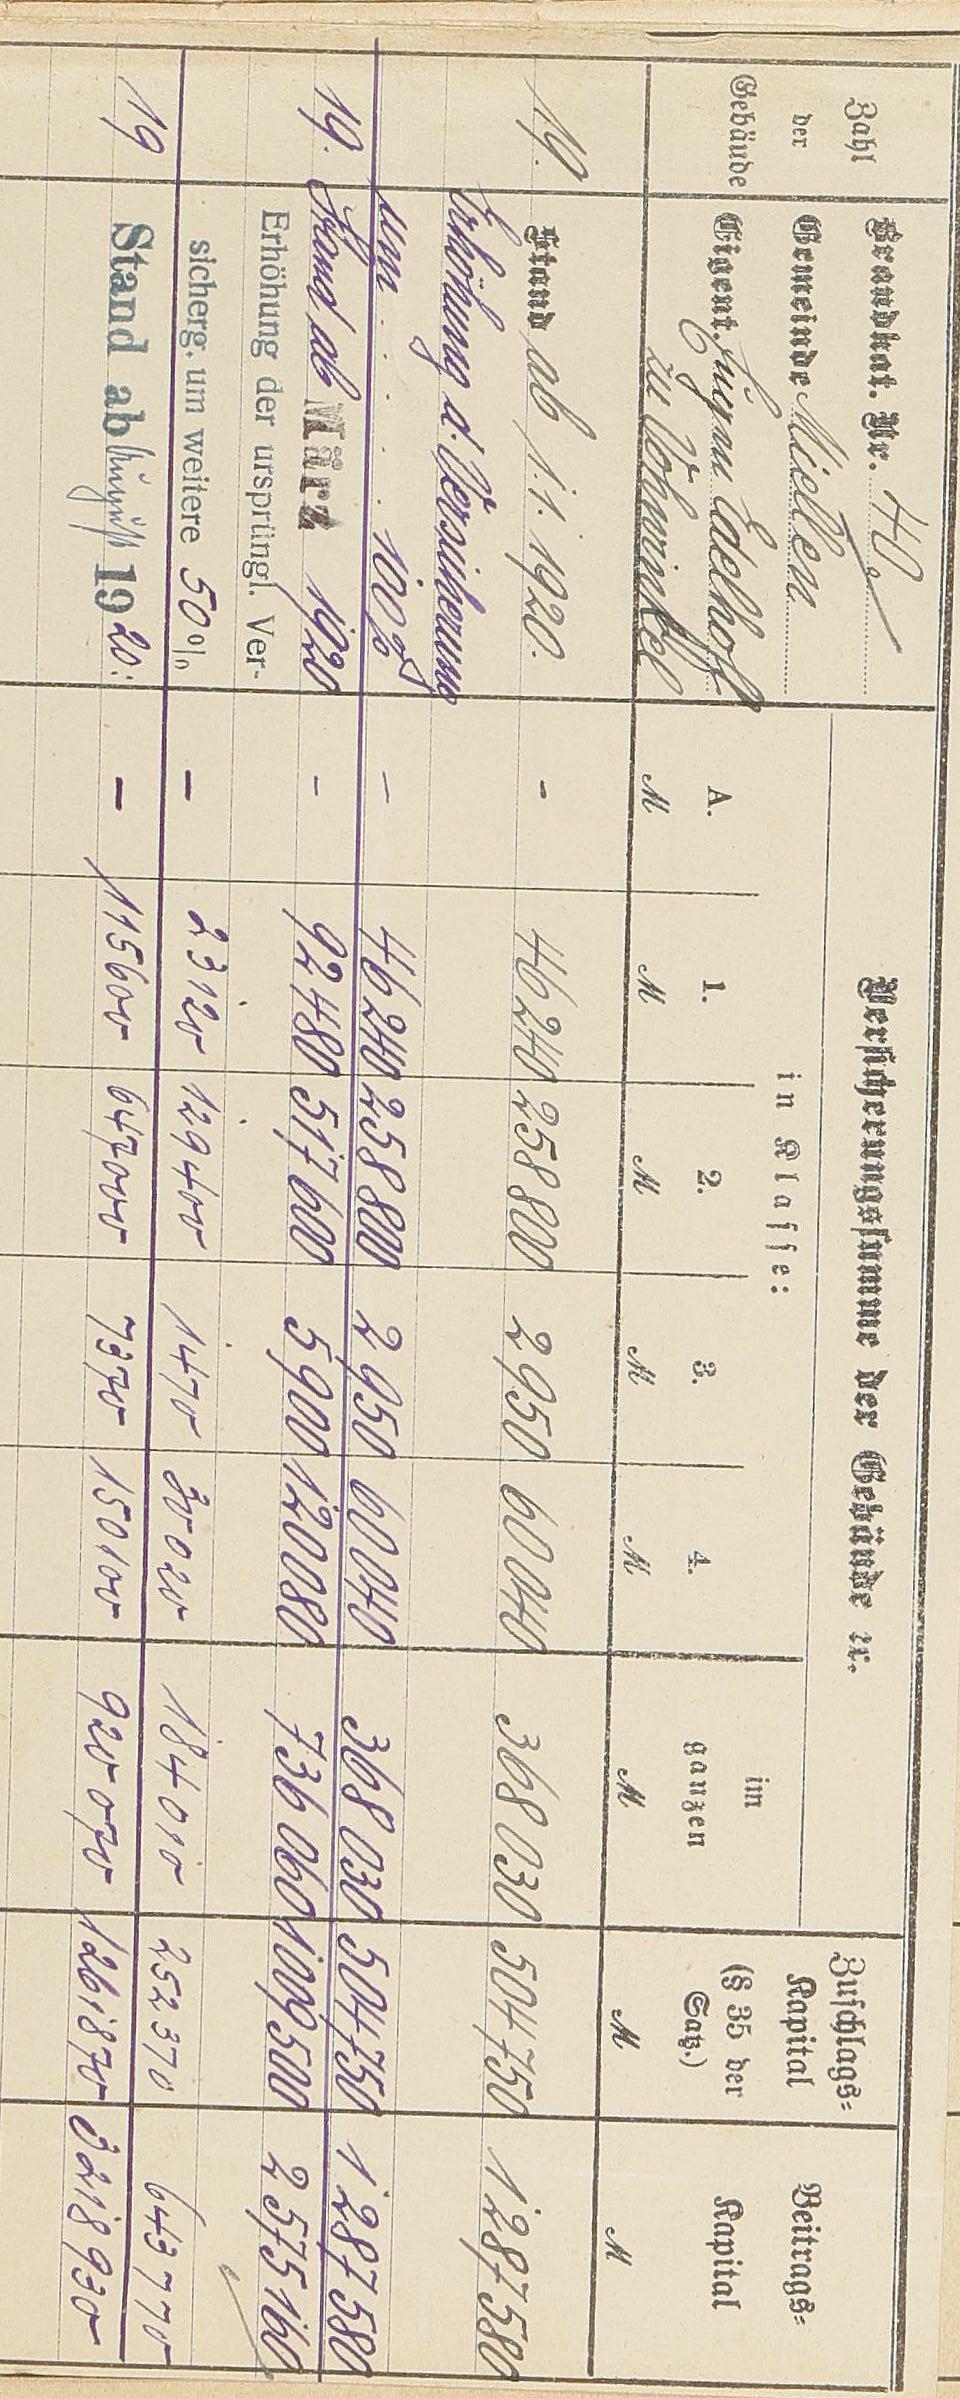 Zahl der Gebäude
Brandkat. Nr. 40
Gemeinde Miellen
Eigent. Eugen Edelhoff
zu Vohwinkel
Versicherungssumme der Gebäude ꝛc.
in Klasse:
A. 1. 2. 3. 4. im ganzen
Zuschlags-Kapital (§ 35 der Satz.)
Beitrags-Kapital
M M M M M M M M
19. Stand ab 1.1.1920. - 46240 258800 2950 60040 368030 504750 1287580
Erhöhung d. Versicherung
um . . . . . 100% - 46240 258800 2950 60040 368030 504750 1287580
19. Stand ab März 1920 - 92480 517600 5900 120080 736060 1009500 2575160
Erhöhung der ursprüngl. Ver-
sicherg. um weitere 50% - 23120 129400 1470 30020 184010 252370 643770
19 Stand ab 1920. - 115600 647000 7370 150100 920070 1261870 3218930